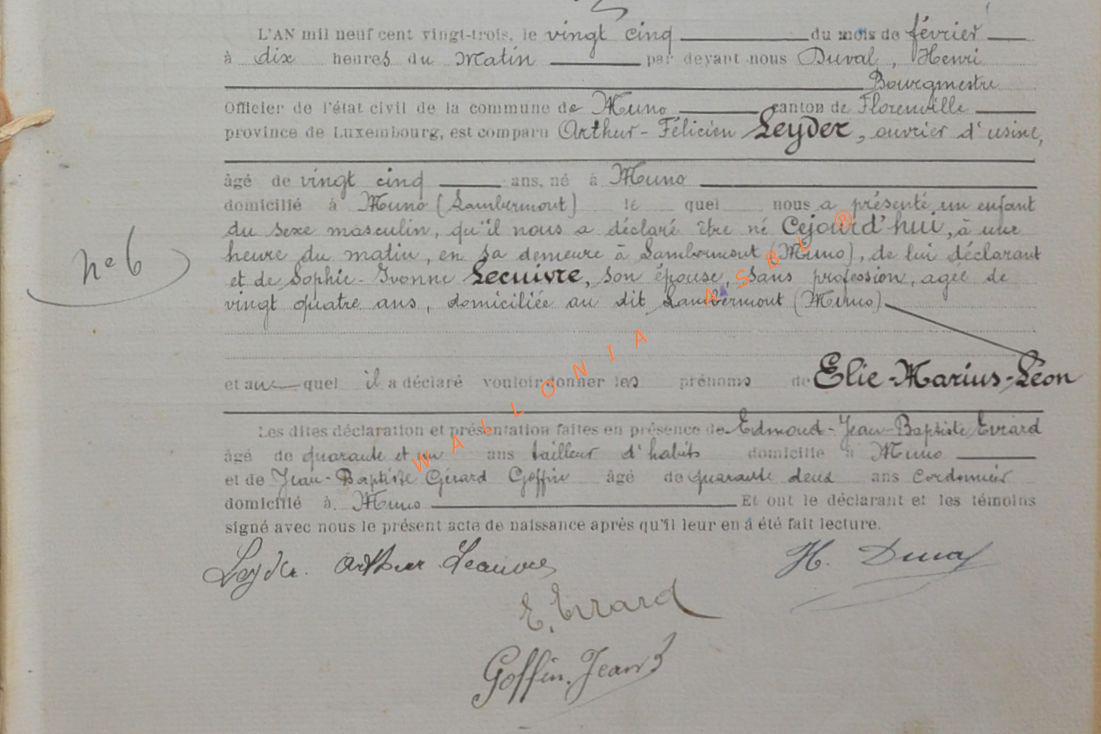 L'AN mil neuf cent vingt-trois, le vingt cinq du mois de février
à dix heures du Matin par devant nous Duval, Henri
Bourgmestre
Officier de l'état civil de la commune de Muno canton de Florenville
province de Luxembourg, est comparu Arthur-Félicien Leyder, ouvrier d'usine,
âgé de vingt cinq ans, né à Muno
domicilié à Muno (Lambermont) le quel nous a présenté un enfant
du sexe masculin, qu'il nous a déclaré être né Cejourd'hui, à une
heure du matin, en sa demeure à Lambermont (Muno), de lui déclarant
et de Sophie-Yvonne Lecuivre, son épouse, sans profession, agée de
vingt quatre ans, domiciliée au dit Lambermont (Muno)
n° 6
et au quel il a déclaré vouloir donner les prénoms de Elie-Marius-Léon
Les dites déclaration et présentation faites en présence de Edmond-Jean-Baptiste Evrard
âgé de quarante et un ans tailleur d'habits domicilié à Muno
et de Jean-Baptiste Gérard Goffin âgé de quarante deux ans Cordonnier
domicilié à Muno Et ont le déclarant et les témoins
signé avec nous le présent acte de naissance après qu'il leur en a été fait lecture.
Leyder Arthur H. Duval
E. Evrard
Goffin. Jean B
WALLONIA ASBL ®